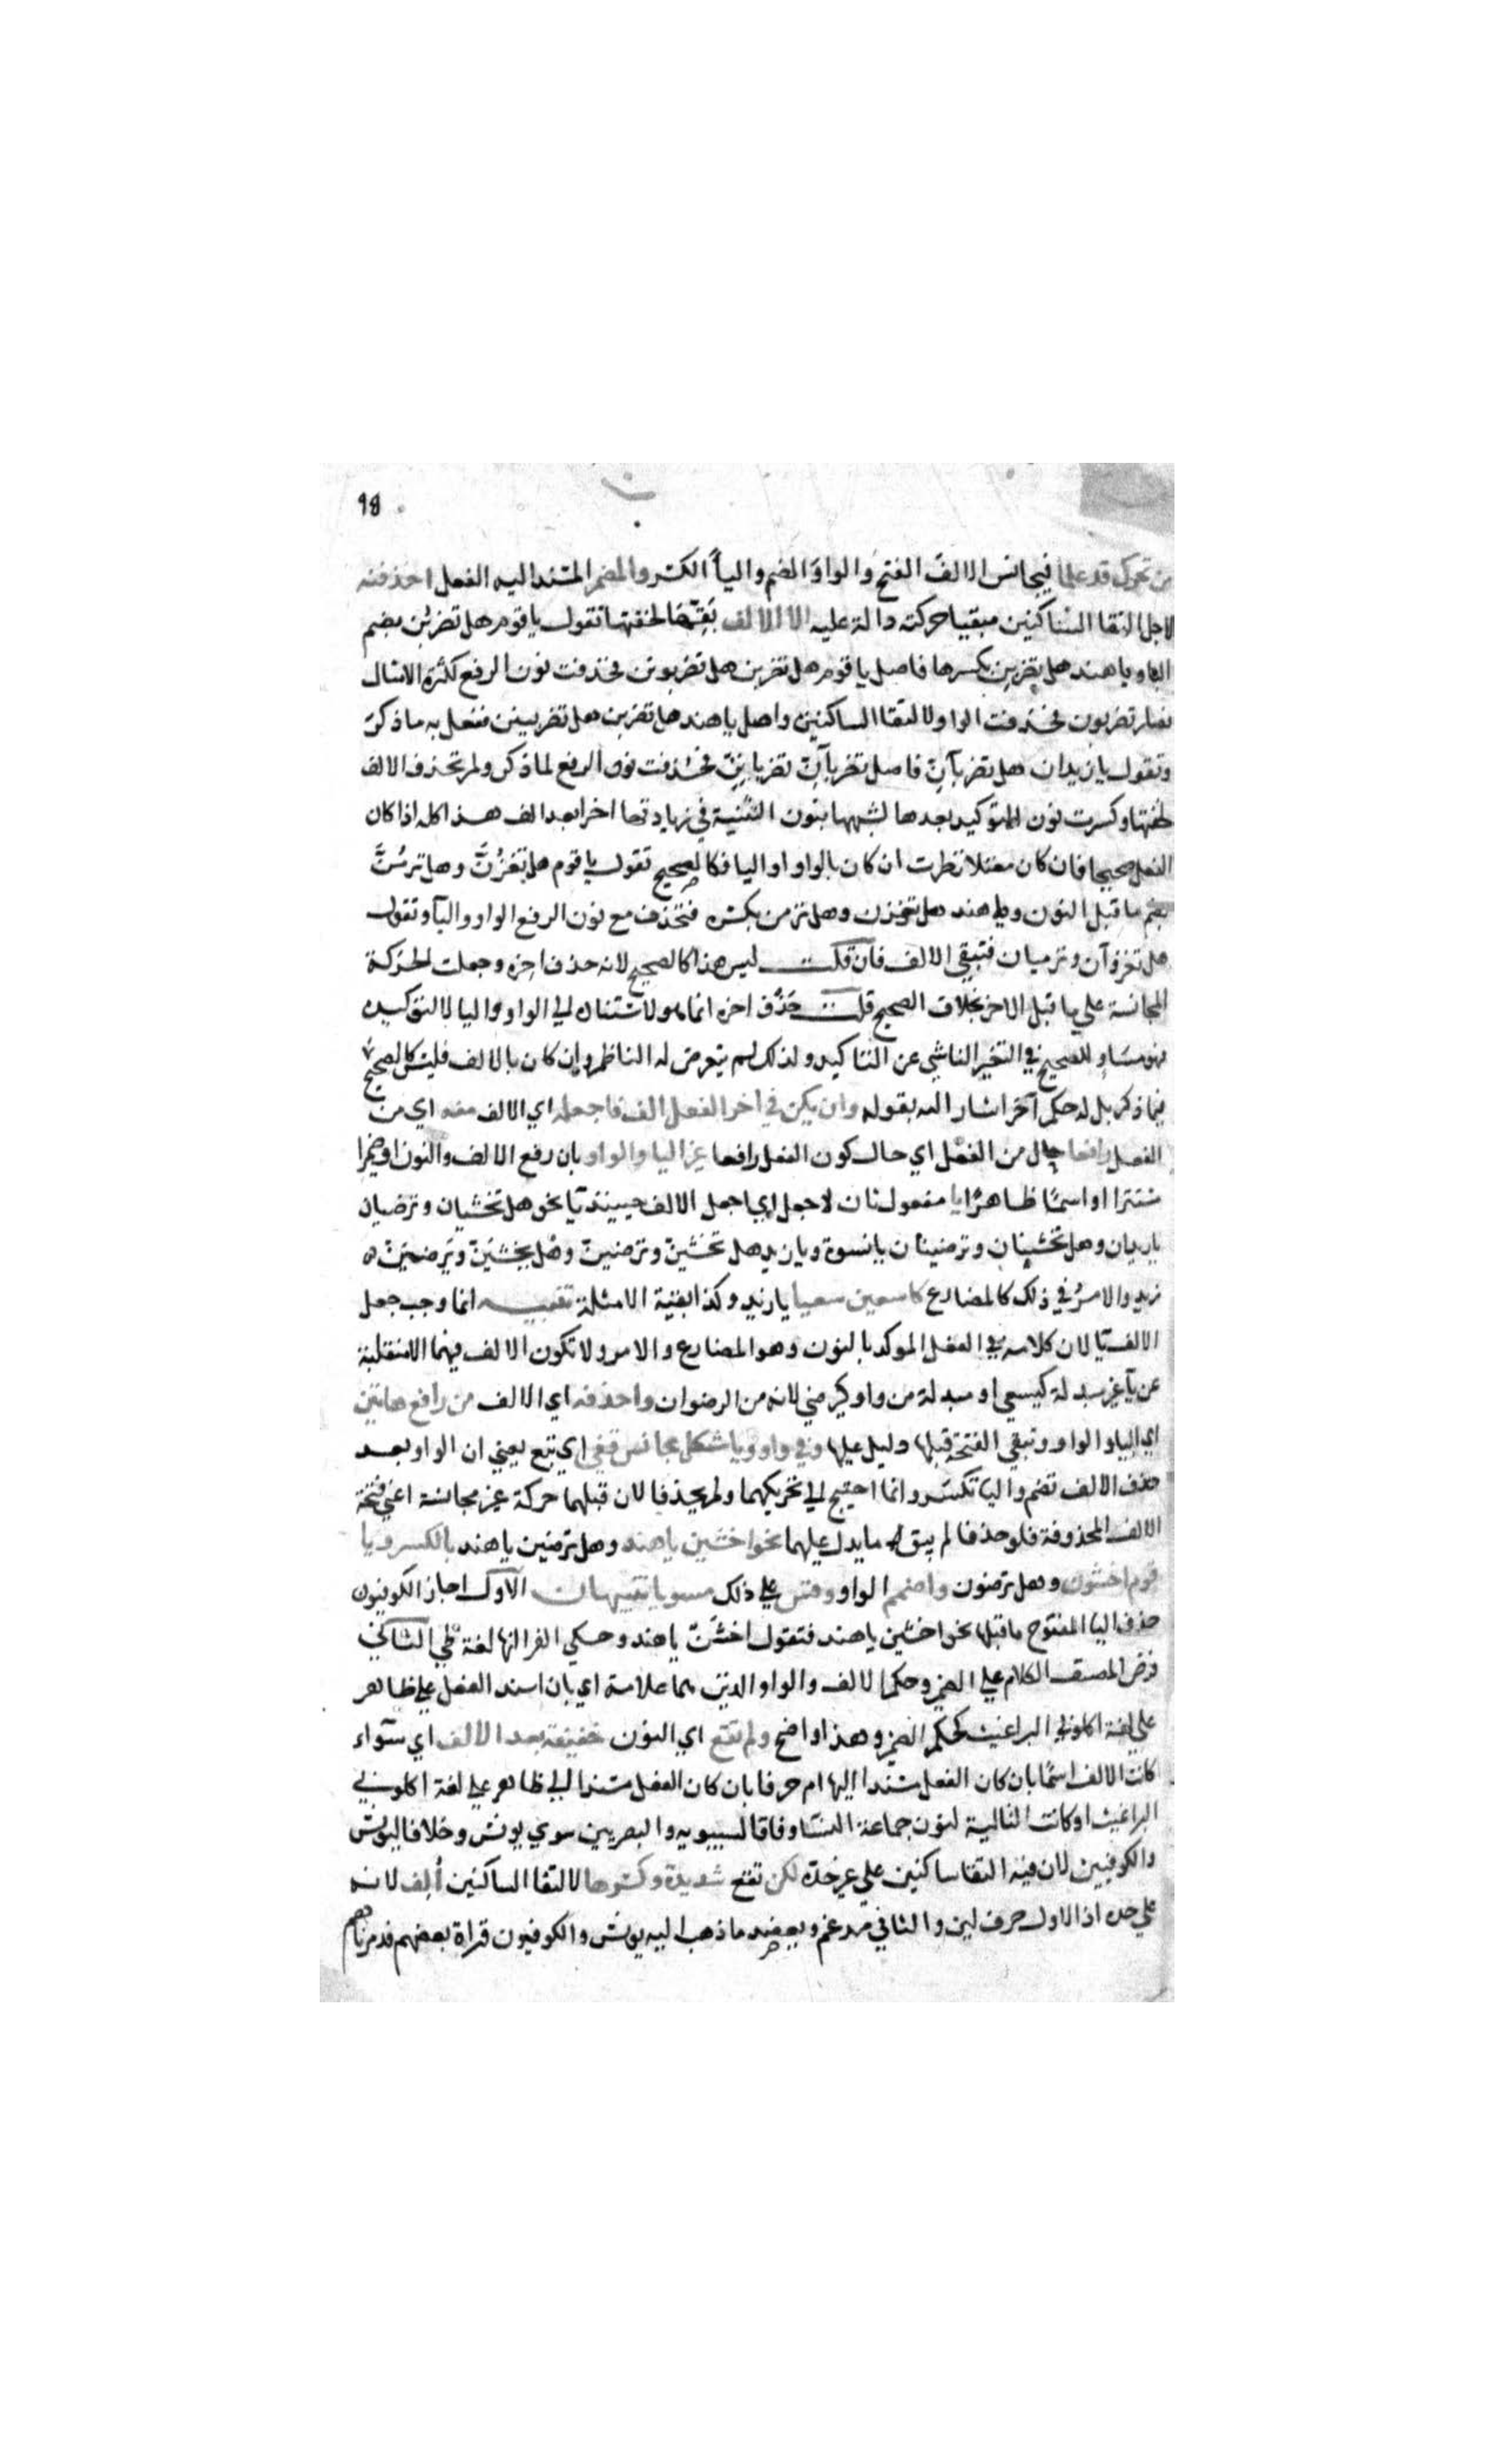 98
من تحرك قد علما فيجانس الالف الفتح والواو الضم واليا الكسر والمضمر المسند اليه الفعل احذفنه
لاجل التقا الساكنين مبقيا حركته دالة عليه الا الالف بَقِّهَا لخفتها تقول يا قوم هل تضربُن بضم
البا ويا هند هل تضربِن بكسرها فاصل يا قوم هل تضربن هل تضربونن فحذفت نون الرفع لكثرة الامثال
فصار تضربون فحذفت الواو لالتقا الساكنين واصل يا هند هل تضربن هل تضربينن ففعل به ما ذكر
وتقول يا زيدان هل تضربآنِّ فاصل تضربآنِّ تضرباننِّ فحذفت نون الرفع لما ذكر ولم تحذف الالف
لخفتها وكسرت نون التوكيد بعدها لشبهها بنون التثنية في زيادتها اخرا بعد الف هذا كله اذا كان
الفعل صحيحا فان كان معتلا نظرت ان كان بالواو او اليا فكالصحيح تقول يا قوم هل تغزُنَّ وهل ترمُنَّ
بضم ما قبل النون ويا هند هل تغزن وهل ترمن بكسره فتحذف مع نون الرفع الواو واليآ وتقول
هل تغزوآن وترميان فتبقي الالف فان قلت ليس هذا كالصحيح لانه حذف اخره وجعلت الحركة
المجانسة علي ما قبل الاخر بخلاف الصحيح قلت حَذْف اخره انما هو لاسناده الي الواو واليا لا لتوكيده
فهو مساو للصحيح في التغير الناشي عن التاكيد ولذلك لم يتعرض له الناظم وان كان بالالف فليس كالصحيح
فيما ذكر بل له حكم آخر اشار اليه بقوله وان يكن في اخر الفعل الف فاجعله اي الالف منه اي من
الفعل رافعا حال من الفعل اي حال كون الفعل رافعا غير اليا والواو بان رفع الالف والنون او ضميرا
مستترا او اسمًا ظاهرًا يا مفعول ثان لاجعل اي اجعل الالف حينئذ يًا نحو هل تخشيان وترضيان
يا زيدان وهل تخشينان وترضينان يا نسوة ويا زيد هل تخشينّ وترضينّ وهل يخشَينّ ويَرضَيَنّ
زيد والامرُ في ذلك كالمضارع كاسعين سعيا يا زيد وكذا بقية الامثلة تنبيه انما وجب جعل
الالف يًا لان كلامه في الفعل الموكد بالنون وهو المضارع والامر ولا تكون الالف فيهما الا منقلبة
عن يآ غير مبدلة كيسعي او مبدلة من واو كيرضي لانه من الرضوان واحذفه اي الالف من رافع هاتين
اي اليا والواو وتبقي الفتحة قبلها دليل عليها وفي واو ويا شكل مجانس قفي اي تبع يعني ان الواو بعد
حذف الالف تضم واليا تكسر وانما احتيج الي تحريكهما ولم يحذفا لان قبلهما حركة غير مجانسة اعني فتحة
الالف المحذوفة فلو حذفا لم يبق ما يدل عليهما نحو اخشين يا هند وهل ترضين يا هند بالكسر ويا
قوم اخشون وهل ترضون واضمم الواو وقس علي ذلك مسويا تنبيهات الآول اجاز الكوفيون
حذف اليا المفتوح ما قبلها نحو اخشين يا هند فتقول اخشَنّ يا هند وحكي الفرا انها لغة طي الثاني
فرض المصنف الكلام علي الضمير وحكم الالف والواو الذين هما علامة اي بان اسند الفعل علي ظاهر
علي لغة اكلوني البراغيث كحكم الضمير وهذا واضح ولم تقع اي النون خفيفة بعد الالف اي سوآء
كانت الالف اسمًا بان كان الفعل مسندا اليها ام حرفا بان كان الفعل مسندا الي ظاهر علي لغة اكلوني
البراغيث او كانت التالية لنون جماعة النسا وفاقا لسيبويه والبصريين سوي يونس وخلافا ليونس
والكوفيين لان فيه التقا ساكنين علي غير حدّه لكن تقع شديدة وكسرها لالتقا الساكنين أُلِف لانه
علي حده اذ الاول حرف لين والثاني مدغم ويعضد ما ذهب اليه يونس والكوفيون قراة بعضهم فدمرناهم